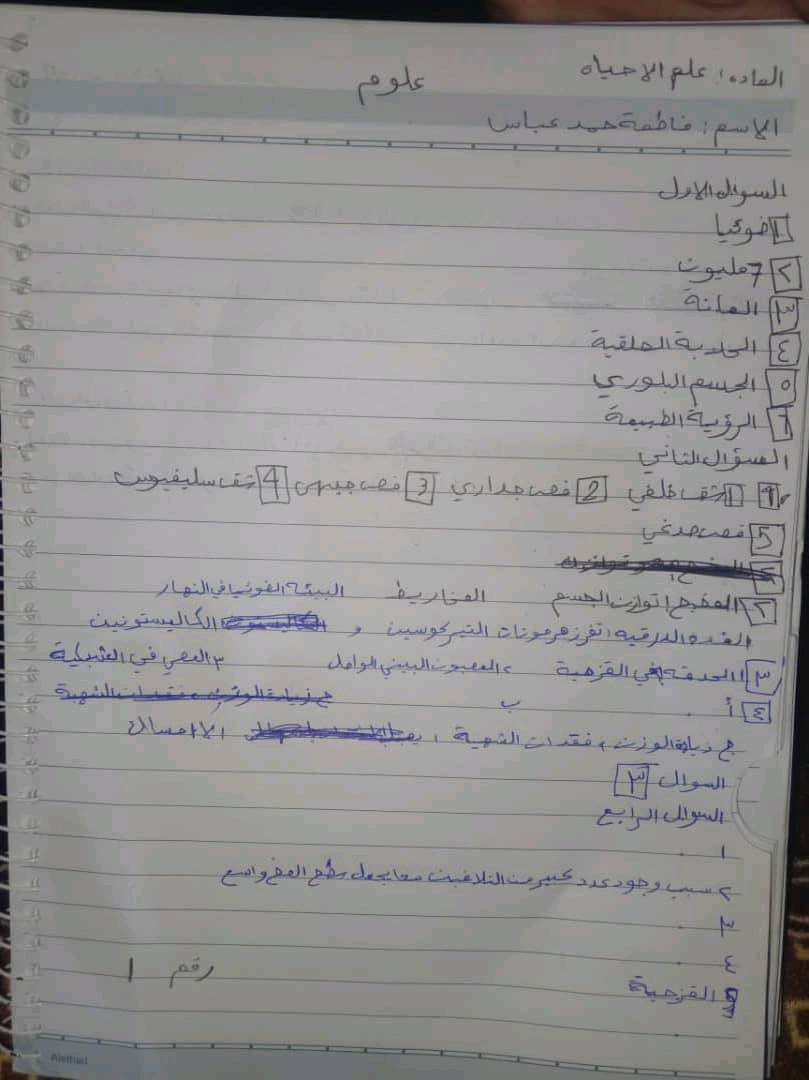 المادة: علم الاحياء
علوم
الاسم: فاطمة حمد عباس
السوال الاول
1 ضوئيا
٢ 7 مليون
٣ العانة
٤ الحلقية
٥ الجسم البلوري
٦ الرؤية الطبيعة
السؤال الثاني
1 شق خلفي 2 فص جداري 3 فص جبهي 4 شق سليفيوس
5 فص صدغي
٢ المخيخ اتوازن الجسم المخاريط البيئة الضوئيا في النهار
الغدة الدرقية اتفرز هرمونات الثيروكسين و الكاليستونين
٣ ١ الحدقة في القزحية ٢ العصبون البيني الواصل ٣ العصي في الشبكية
٤ أ. ب
ج زيادة الوزن، فقدان الشهية، الامسال
السوال ٣
السوال الرابع
١.
٢ سبب وجود عدد كبير من التلافيف مما يجعل سطح المخ واسع
٣
٤.
القزحية
رقم 1
Alethad